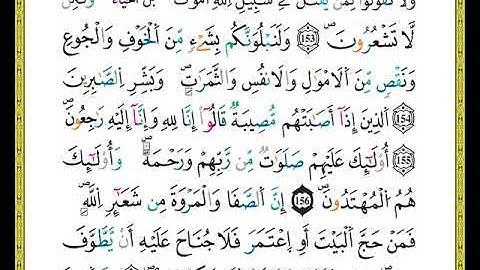 وَلَا تَقُولُوا لِمَنْ يُقْتَلُ فِي سَبِيلِ اللَّهِ أَمْوَاتٌ
لَّا تَشْعُرُونَ ۖ 153 وَلَنَبْلُوَنَّكُم بِشَےْءٖ مِّنَ اَ۬لْخَوْفِ وَالْجُوعِ
وَنَقْصٖ مِّنَ اَ۬لَامْوَٰلِ وَالَانفُسِ وَالثَّمَرَٰتِ ۖ وَبَشِّرِ اِ۬لصَّٰبِرِينَ
154 اَ۬لذِينَ إِذَآ أَصَٰبَتْهُم مُّصِيبَةٞ قَالُوٓاْ إِنَّا لِلهِ وَإِنَّآ إِلَيْهِ رَٰجِعُونَ ۖ
155 أُوْلَٰٓئِكَ عَلَيْهِمْ صَلَوَٰتٞ مِّن رَّبِّهِمْ وَرَحْمَةٞ ۖ وَأُوْلَٰٓئِكَ
هُمُ اُ۬لْمُهْتَدُونَ ۖ 156 إِنَّ اَ۬لصَّفَا وَالْمَرْوَةَ مِن شَعَٰٓئِرِ اِ۬للَّهِ ۖ
فَمَنْ حَجَّ اَ۬لْبَيْتَ أَوِ اِ۪عْتَمَرَ فَلَا جُنَاحَ عَلَيْهِ أَنْ يَّطَّوَّفَ